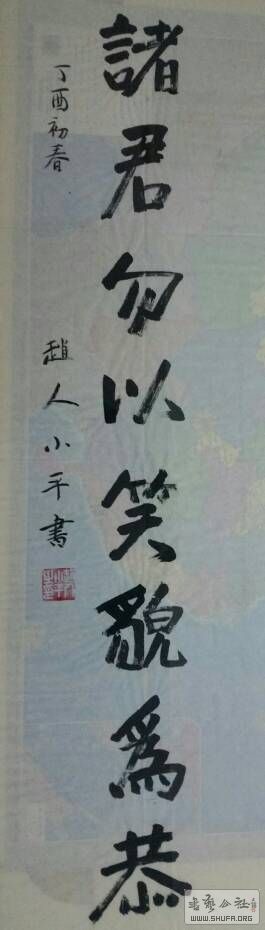 諸君勿以笑貌為恭
丁酉初春
趙人小平書
书艺公社
WWW.SHUFA.ORG